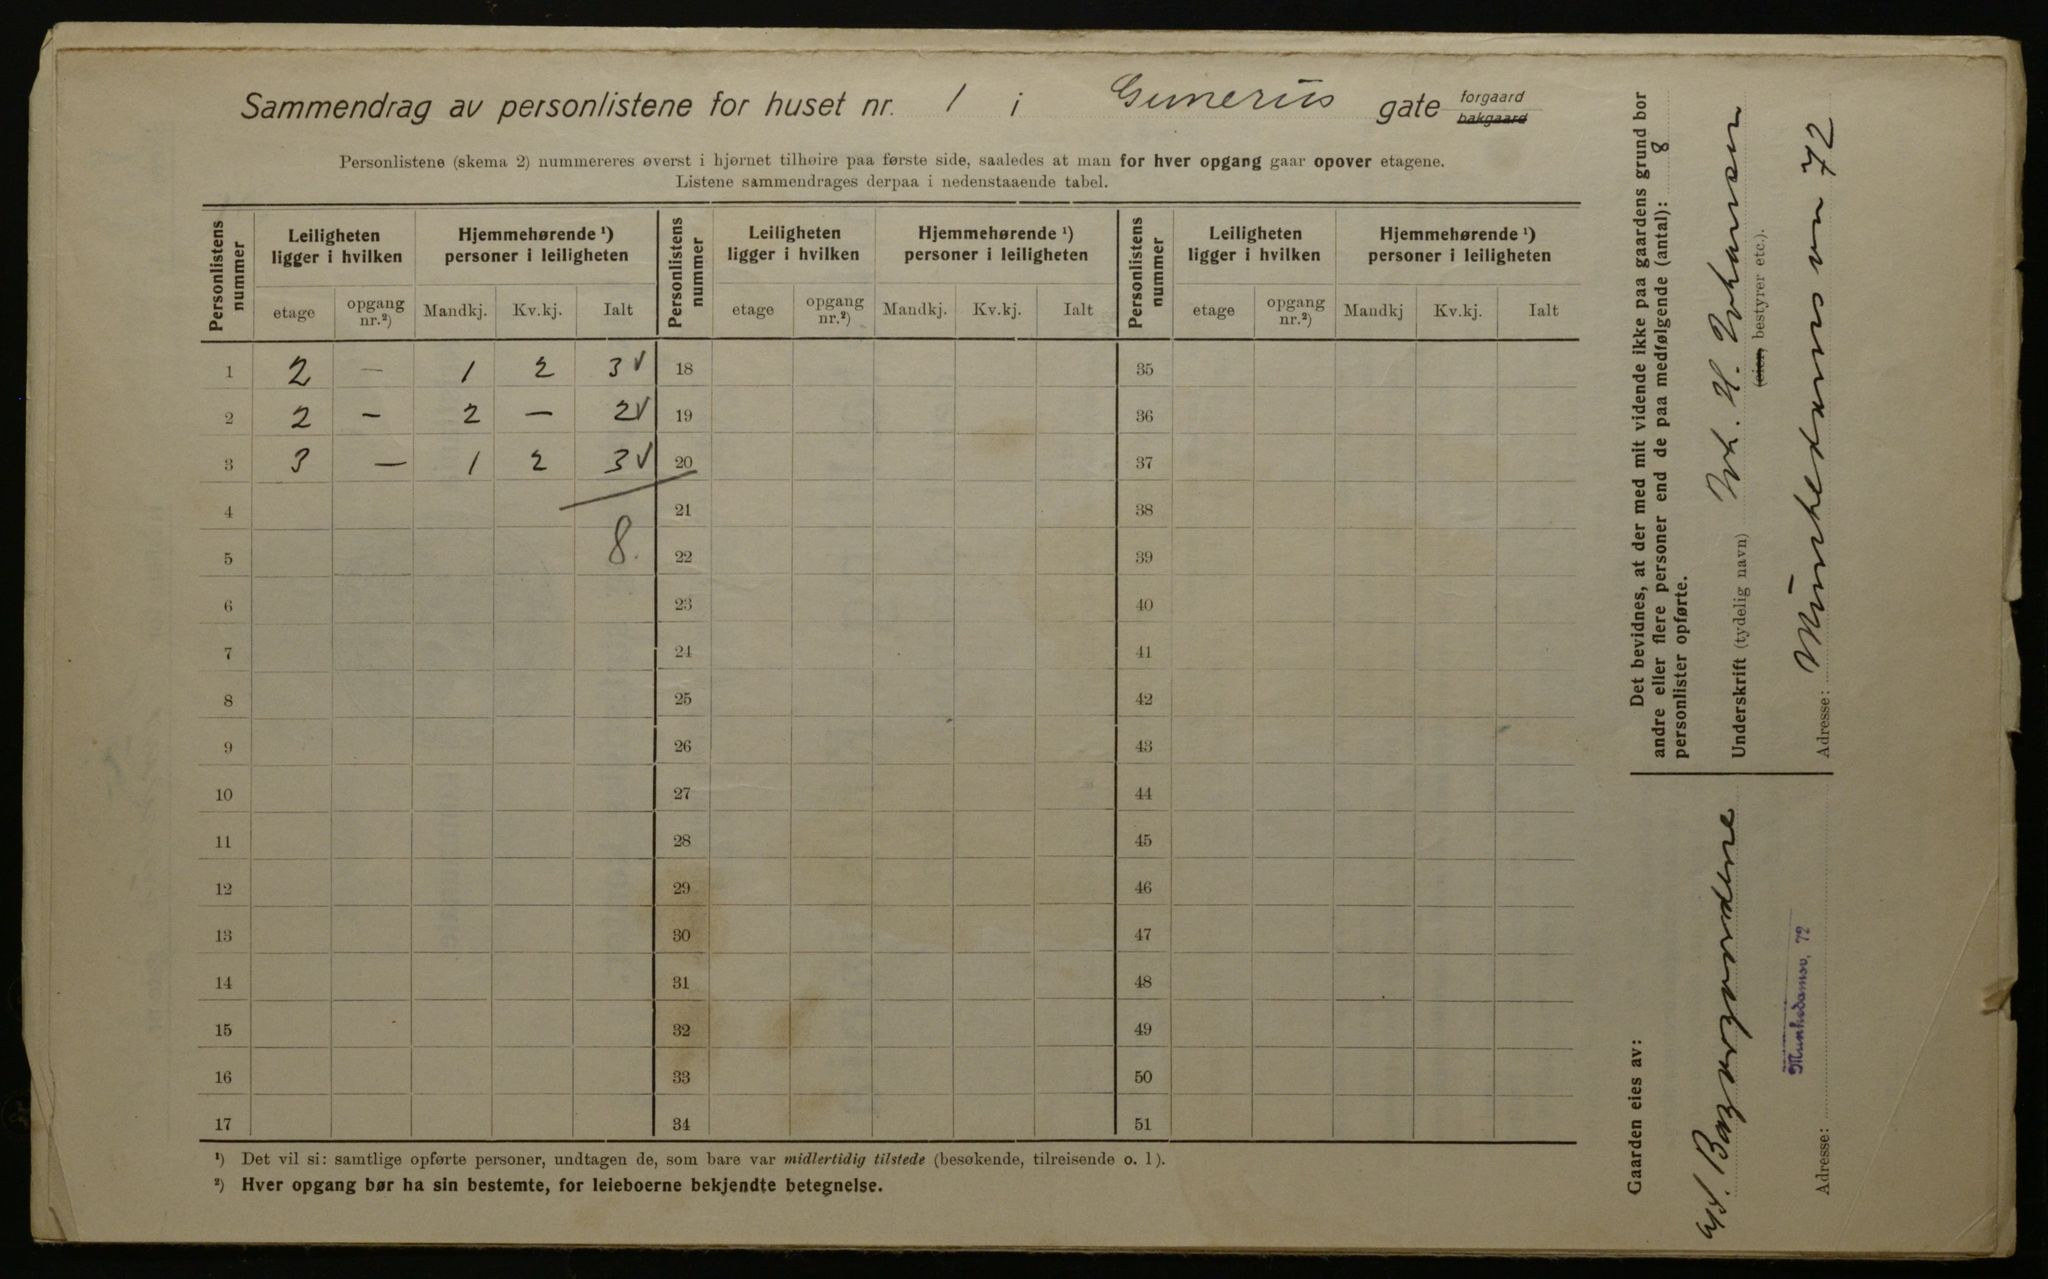 Sammendrag av personlistene for huset nr. 1 i Gunerius gate forgaard bakgaard
Personlistene (skema 2) nummereres øverst i hjørnet tilhøire paa første side, saaledes at man for hver opgang gaar opover etagene.
Listene sammendrages derpaa i nedenstaaende tabel.
Personlistens nummer | Leiligheten ligger i hvilken | Hjemmehørende ¹) personer i leiligheten | Personlistens nummer | Leiligheten ligger i hvilken | Hjemmehørende ¹) personer i leiligheten | Personlistens nummer | Leiligheten ligger i hvilken | Hjemmehørende ¹) personer i leiligheten
etage | opgang nr.²) | Mandkj. | Kv.kj. | Ialt | etage | opgang nr.²) | Mandkj. | Kv.kj. | Ialt | etage | opgang nr.²) | Mandkj | Kv.kj. | Ialt
1 | 2 | — | 1 | 2 | 3 √ | 18 | 35
2 | 2 | — | 2 | — | 2 √ | 19 | 36
3 | 3 | — | 1 | 2 | 3 √ | 20 | 37
4 | 21 | 38
5 | 8. | 22 | 39
6 | 23 | 40
7 | 24 | 41
8 | 25 | 42
9 | 26 | 43
10 | 27 | 44
11 | 28 | 45
12 | 29 | 46
13 | 30 | 47
14 | 31 | 48
15 | 32 | 49
16 | 33 | 50
17 | 34 | 51
¹) Det vil si: samtlige opførte personer, undtagen de, som bare var midlertidig tilstede (besøkende, tilreisende o. l).
²) Hver opgang bør ha sin bestemte, for leieboerne bekjendte betegnelse.
Det bevidnes, at der med mit vidende ikke paa gaardens grund bor
andre eller flere personer end de paa medfølgende (antal): 8
personlister opførte.
Underskrift (tydelig navn) Joh. H. Johansen
(eier, bestyrer etc.).
Adresse: Munkedamsvn 72
Gaarden eies av:
Munkedamsv. 72
Adresse: